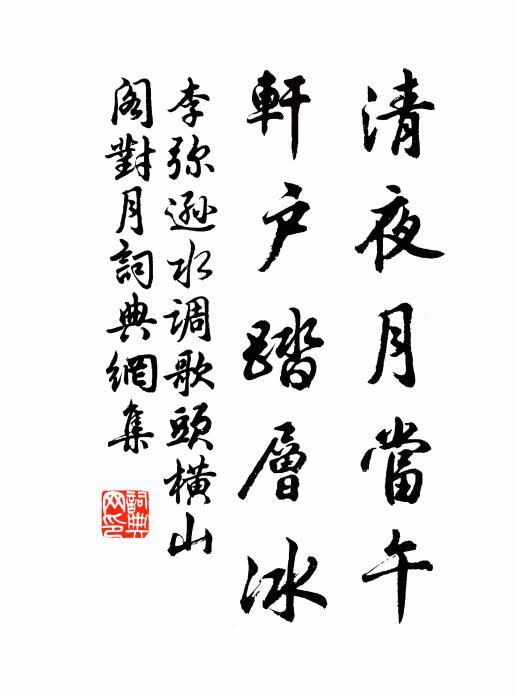 清夜月當午
軒户踏層冰
李弥遜水调歌頭橫山
阁對月詞典網集
詞典
网印